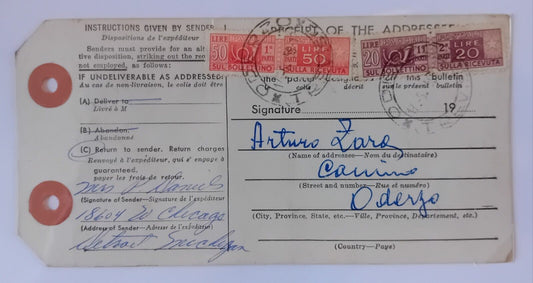 INSTRUCTIONS GIVEN BY SENDER
Dispositions de l'expéditeur
Senders must provide for an alternative disposition, striking out the
not employed, as follows:
IF UNDELIVERABLE AS ADDRESSED:
du cas de non-livraison, le colis doit être
(A) Deliver to
Livré à M
(B) Abandon.
Abandonné
(C) Return to sender. Return charges
Renvoyé à l'expéditeur, qui s'engage à
guaranteed.
payer les frais de retour.
Mrs Daniels
(Signature of Sender—Signature de l'expéditeur)
18604 W Chicago
(Address of Sender—Adresse de l'expéditeur)
Detroit Michigan
OF THE ADDRESSEE
LIRE 50
SUL BOLLETTINO
1ª PARTE
LIRE 50
SULLA RICEVUTA
20 LIRE
SUL BOLLETTINO
LIRE 20
SULLA RICEVUTA
colis
sur le présent bulletin
bulletin
Signature 19
Arturo Zara
(Name of addressee—Nom du destinataire)
Camino
(Street and number—Rue et numéro)
Oderzo
(City, Province, State, etc.—Ville, Province, Département, etc.)
(Country—Pays)